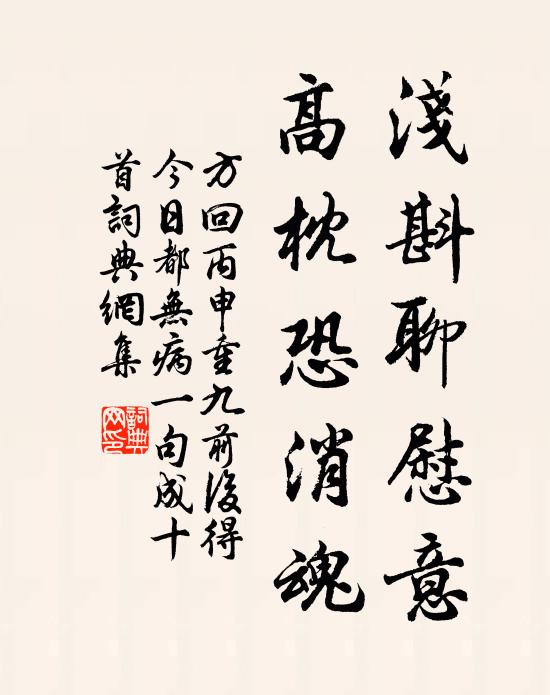 淺斟聊慰意
高枕恐消魂
方回丙申重九前後得
今日都無病一句成十
首詞典網集
詞典
网印